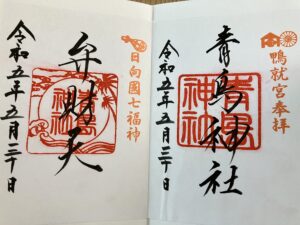 鴨就宮奉拝
青島神社
青島神社
令和五年五月二十日
日向國七福神
弁財天
令和五年五月二十日